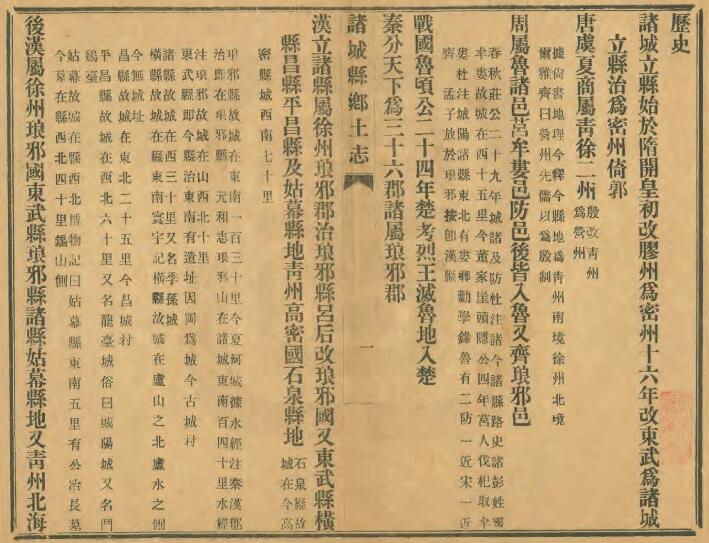 歷史
諸城立縣始於隋開皇初改膠州為密州十六年改東武為諸城
立縣治為密州倚郭
唐虞夏商屬青徐二州殷改青州
為營州
據尙書地理今釋今縣地為青州南境徐州北境
爾雅齊曰營州先儒以為殷制
周屬魯諸邑莒牟婁邑防邑後皆入魯又齊琅邪邑
春秋莊公二十九年城諸及防杜注諸今諸縣路史諸彭姓國
牟婁故城在西十五里今董家崖頭隱公四年莒人伐杞取牟
婁杜注城陽諸縣東北有婁鄉勸學錄魯有二防一近宋一近
齊 孟子放於琅邪按卽漢縣
戰國魯頃公二十四年楚考烈王滅魯地入楚
秦分天下為三十六郡諸屬琅邪郡
諸城縣鄉土志
一
漢立諸縣屬徐州琅邪郡治琅邪縣呂后改琅邪國又東武縣橫
縣昌縣平昌縣及姑幕縣地青州高密國石泉縣地石泉縣故
城在今高
密縣城西南七十里
琅邪縣故城在東南一百三十里今夏河城據水經注秦漢郡
治卽在琅邪縣 元和志琅邪山在諸城東南百四十里水經
注琅邪故城在山西北十里
東武縣卽今縣治東南有遺址因岡為城今古城村
諸縣故城在西三十里又名季孫城
橫縣故城在縣東南寰宇記橫縣故城在盧山之北盧水之側
今無城址
昌縣故城在東北二十五里今昌城村
平昌縣故城在西北六十里又名龍臺城俗曰城陽城又名門
鷄臺
姑幕故城在縣西北博物記曰姑幕縣東南五里有公冶長墓
今墓在縣西北四十里錫山側
後漢屬徐州琅邪國東武縣琅邪縣諸縣姑幕縣地又青州北海